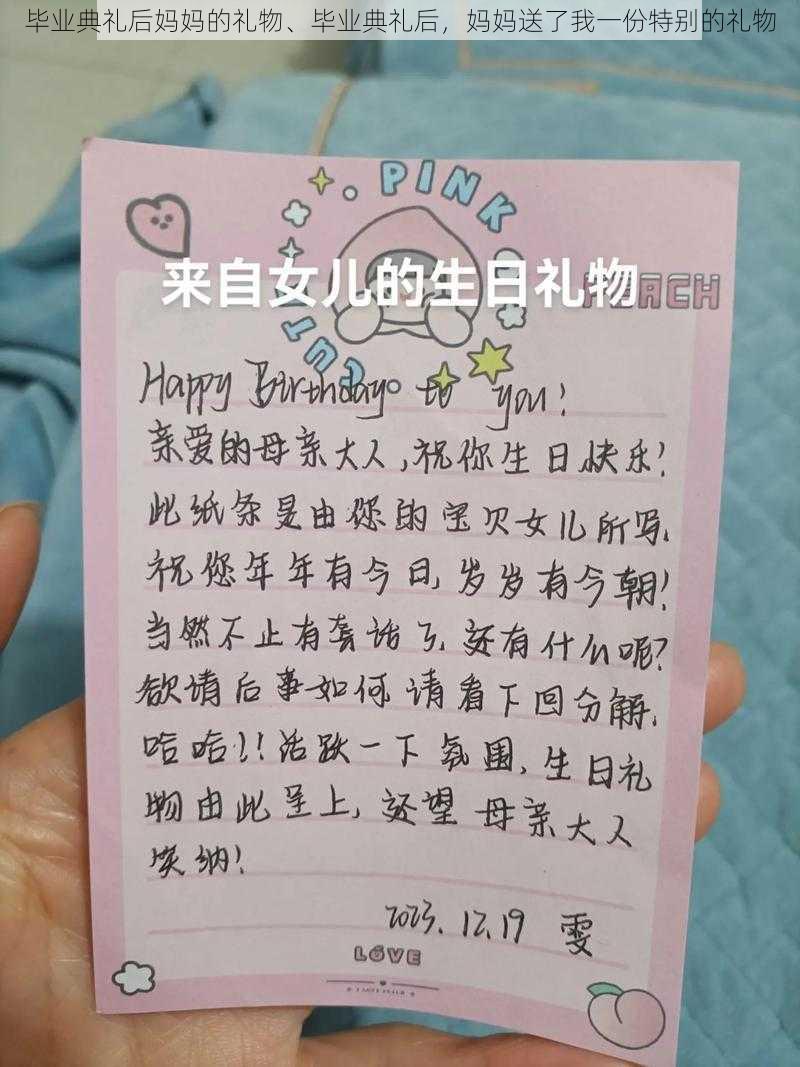 毕业典礼后妈妈的礼物、毕业典礼后，妈妈送了我一份特别的礼物
PINK
PEACH
CUTE
来自女儿的生日礼物
Happy Birthday to you!
亲爱的母亲大人,祝你生日快乐!
此纸条是由您的宝贝女儿所写,
祝您年年有今日,岁岁有今朝!
当然不止有套话了,还有什么呢?
欲请后事如何请看下回分解,
哈哈!!活跃一下氛围,生日礼
物由此呈上,还望母亲大人
笑纳!
2023.12.19 雯
LOVE